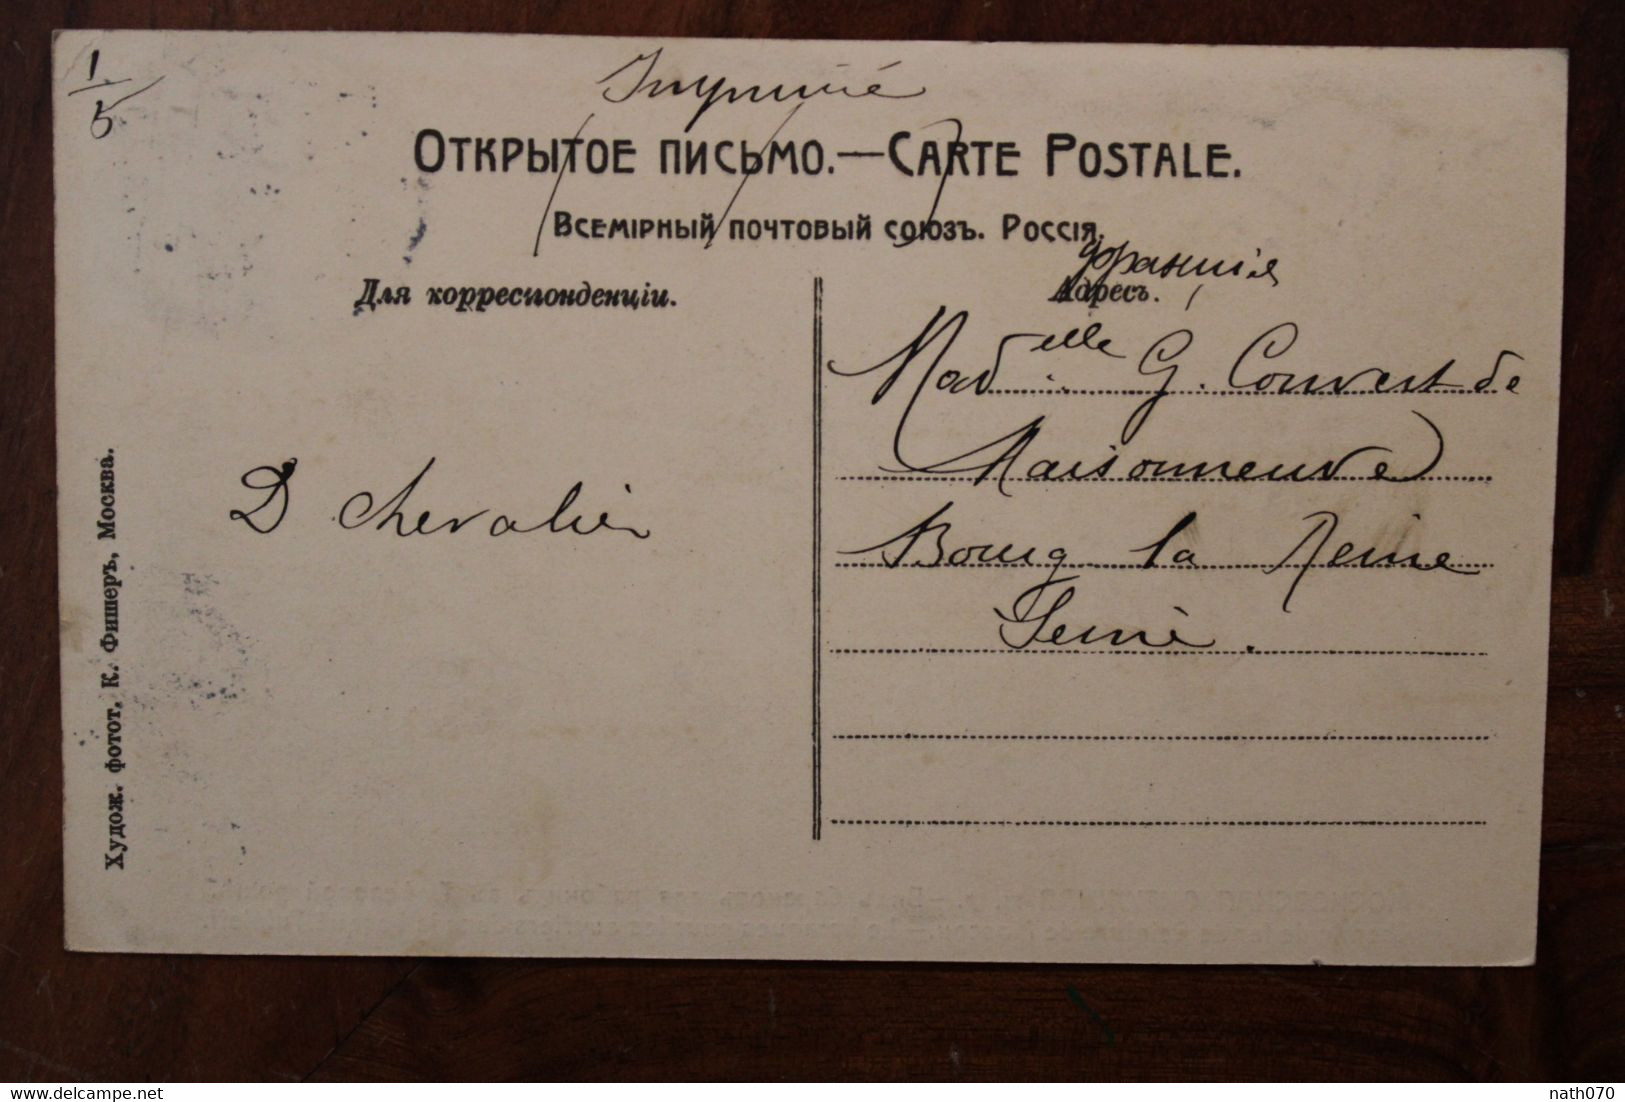 1/5
Imprimé
Открытое письмо.—Carte Postale.
Всемірный почтовый союзъ. Россія.
Для корреспонденціи.
Франція
Адресъ.
Mad^elle G. Convert de
Maisonneuve
Bourg la Reine
Seine.
D Chevalier
Худож. фотот. К. Фишеръ, Москва.
delcampe.net
nath070